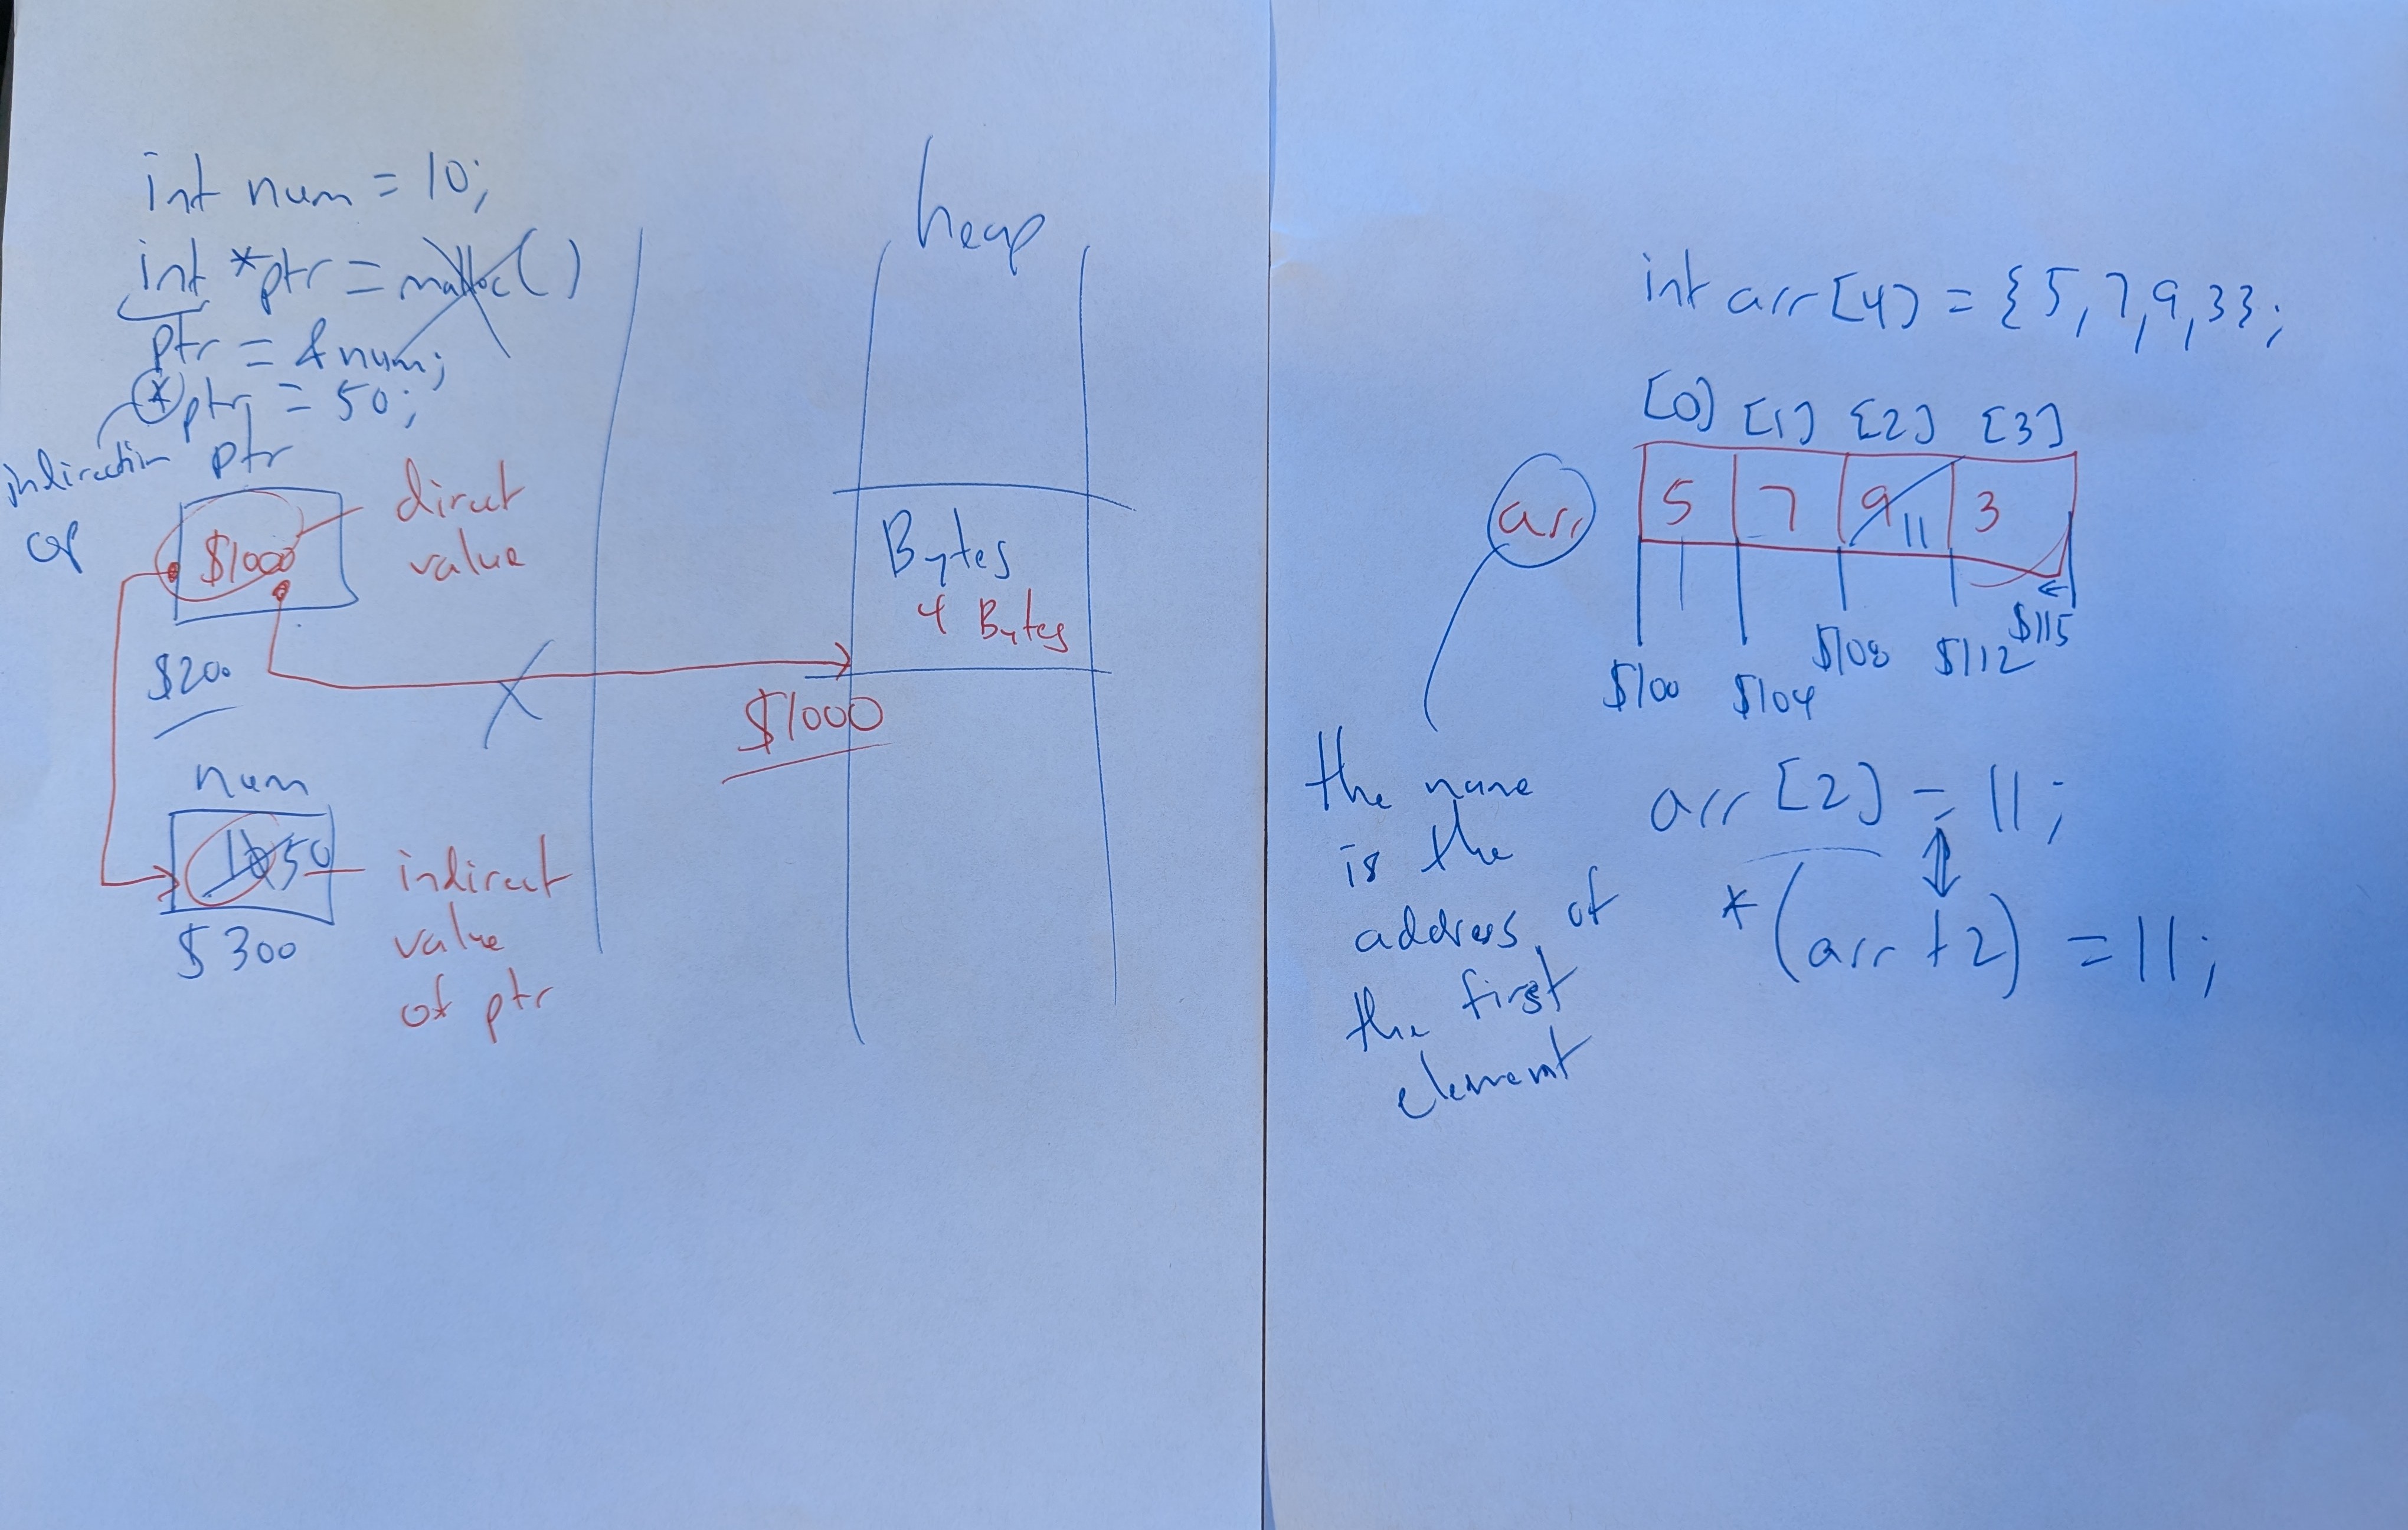 int num = 10;
int *ptr = malloc()
ptr = &num;
*ptr = 50;
indirection
op
ptr
$1000
direct
value
$200
num
10 50
$300
indirect
value
of ptr
heap
Bytes
4 Bytes
$1000
int arr[4] = {5,7,9,3};
[0] [1] [2] [3]
arr 5 7 9 11 3
$100 $104 $108 $112 $115
the name
is the
address of
the first
element
arr[2] = 11;
*(arr+2) = 11;